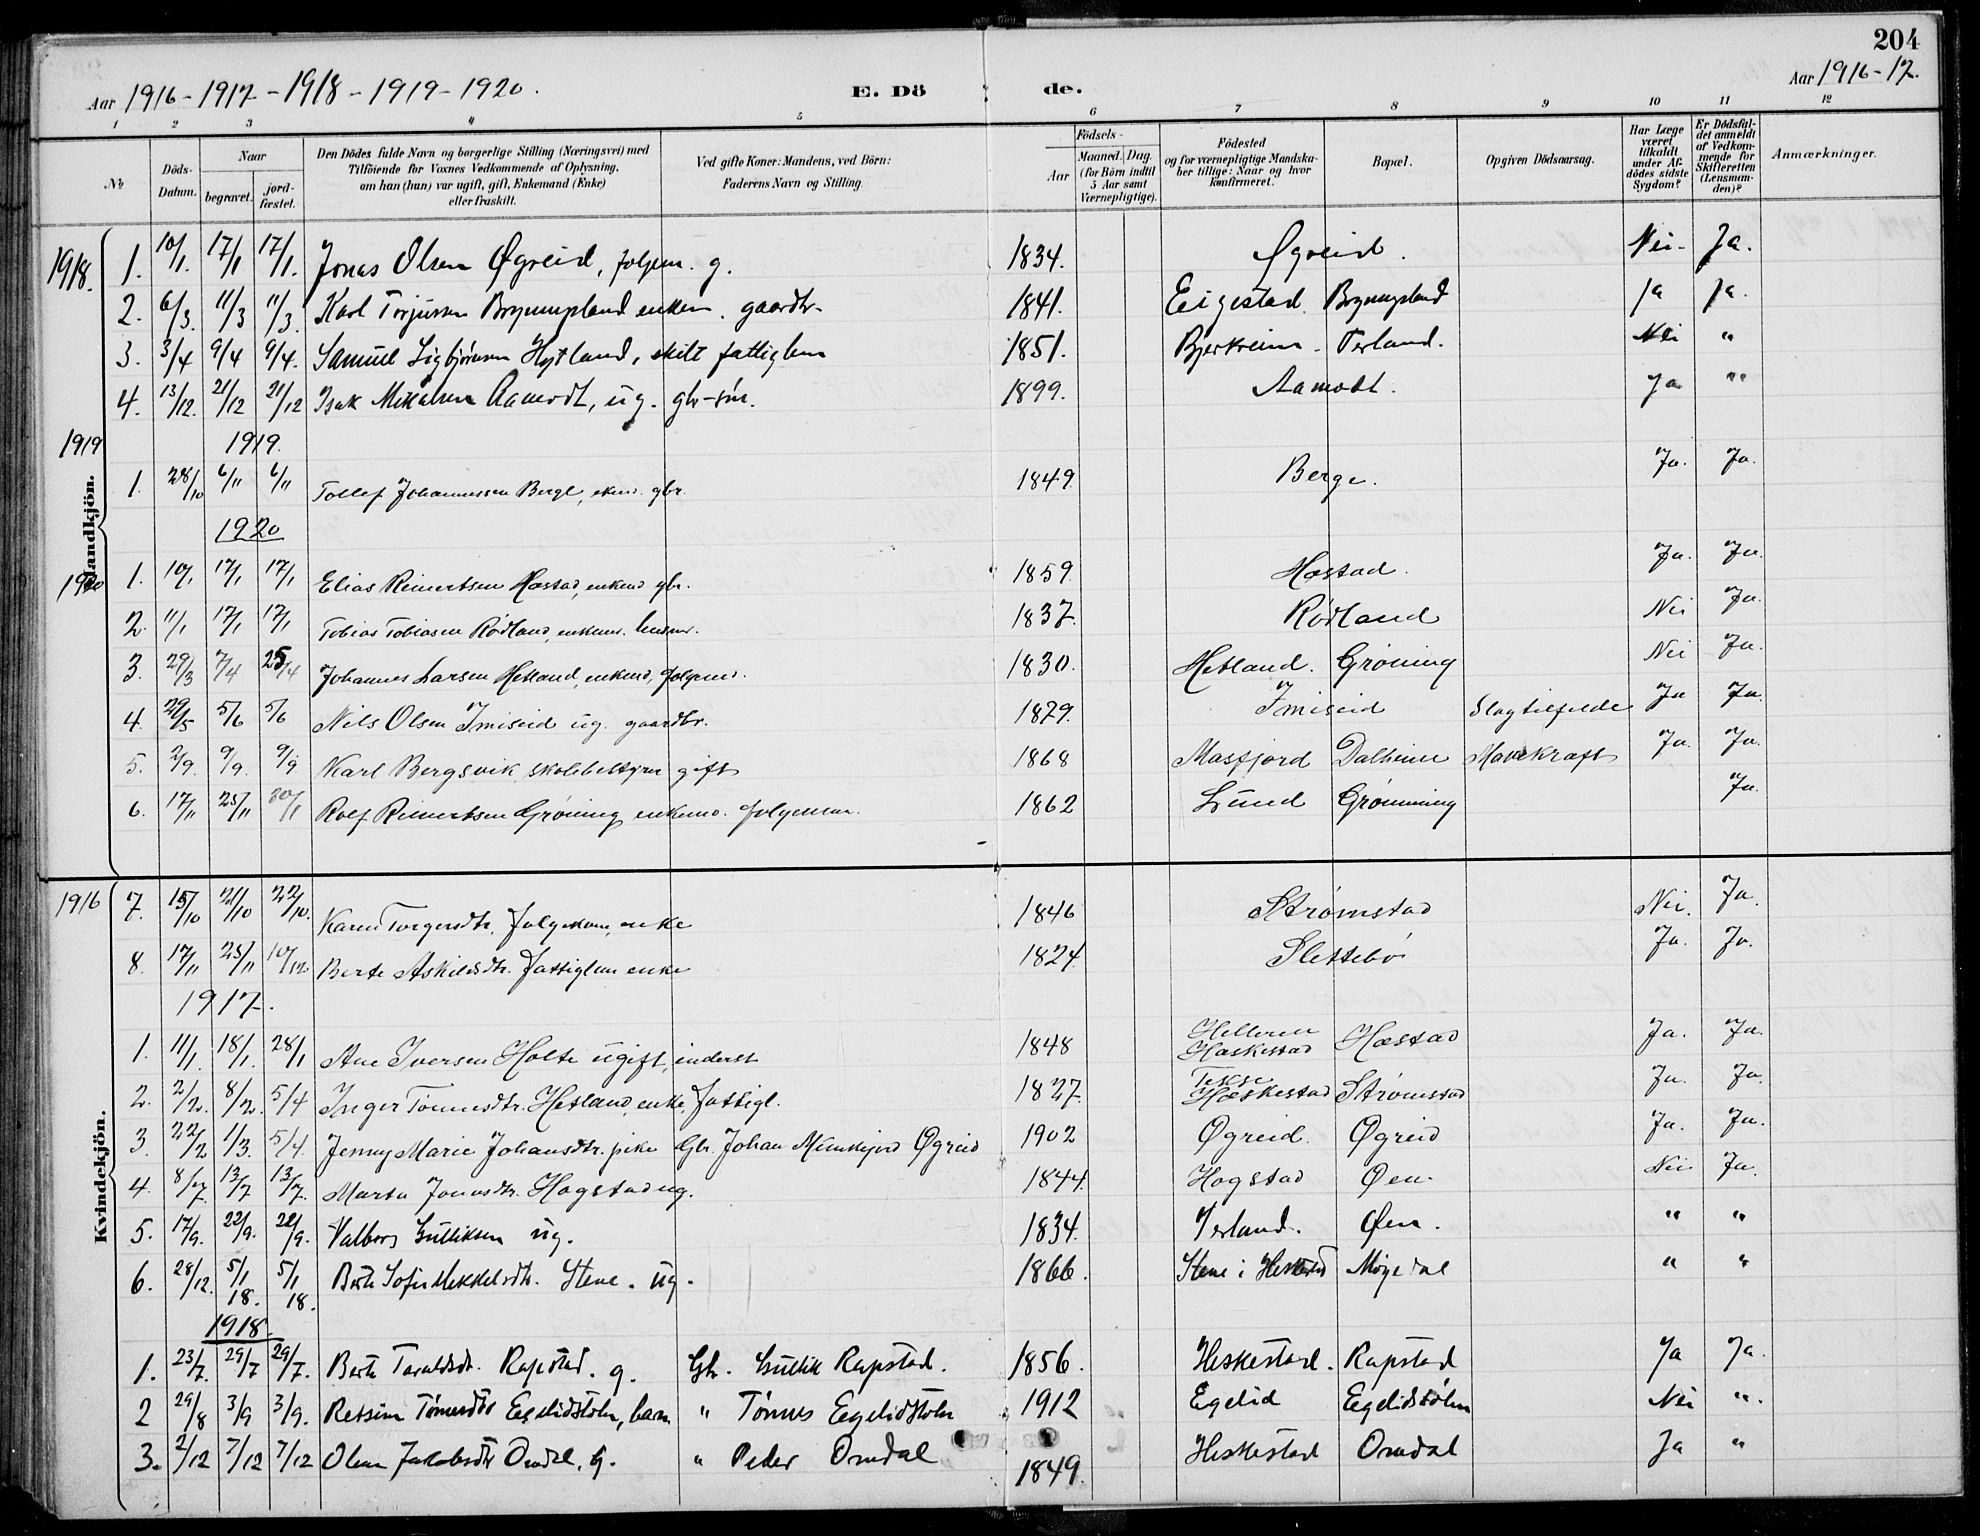 204
Aar 1916-1917-1918-1919-1920. E. Dö de. Aar 1916-17.
1 2 3 4 5 6 7 8 9 10 11 12
№ Döds-Datum. Naar begravet. jord-fæstet. Den Dödes fulde Navn og borgerlige Stilling (Næringsvei) med Tilföiende for Voxnes Vedkommende af Oplysning, om han (hun) var ugift, gift, Enkemand (Enke) eller fraskilt. Ved gifte Koner: Mandens, ved Börn: Faderens Navn og Stilling. Födsels- Aar Maaned. Dag. (for Börn indtil 5 Aar samt Værnepligtige). Födested og for værnepligtige Mandskaber tillige: Naar og hvor konfirmeret. Bopæl. Opgiven Dödsaarsag. Har Læge været tilkaldt under Afdödes sidste Sygdom? Er Dödsfaldet anmeldt af Vedkommende for Skifteretten (Lensmanden)? Anmærkninger.
Mandkjön.
1918. 1. 10/1. 17/1 17/1. Jonas Olsen Øgreid, folgem. g. 1834. Øgreid. Nei- Ja.
2. 6/3. 11/3 11/3. Karl Torjussen enkem. gaardbr. 1841. Eigestad. Ja Ja.
3. 3/4 9/4 9/4. Samuel Sigbjørnsen Hytland, skilt fattiglem 1851. Bjerkreim. Terland. Nei "
4. 13/12. 21/12 21/12 Isak Mikalsen Aamodt, ug. gbr-søn. 1899. Aamodt. Ja "
1919 1919.
1. 28/10 6/11 6/11 Tollef Johannessen Berge, ekem. gbr. 1849. Berge. Ja. Ja.
1920
1920 1. 10/1 17/1 17/1 Elias Reinertsen Hæstad, enkem gbr. 1859. Hæstad. Ja. Ja.
2. 11/1 17/1 17/1 Tobias Tobiasen Rödland, enkem. husm. 1837. Rödland Nei Ja.
3. 29/3 7/4 25/4 Johannes Larsen Hetland, enkem, folgem. 1830. Hetland. Gröning Nei Ja.
4. 29/5 5/6 5/6 Nils Olsen Imiseid ug. gaardbr. 1829. Imiseid Slagtilfælde Ja Ja.
5. 2/9. 9/9. 9/9 Karl Bergsvik, skolebestyrer gift 1868 Masfjord Dalheim Mavekræft Ja. Ja.
6. 17/11 25/11 30/1 Rolf Reinertsen Gröning enkem. folgeman. 1862 Lund Grönning Ja.
Kvindekjön.
1916 7. 15/10 21/10 22/10. Karen Torgersdtr. folgekone, enke 1846 Strömstad Nei. Ja.
8. 17/11 25/11 10/12. Berte Askildsdtr. fattiglem enke 1824. Slettebö Ja. Ja.
1917.
1. 11/1. 18/1. 28/1 Ane Iversen Holte ugift, inderst 1848 Helleren Hæskestad Hæstad Ja. Ja.
2. 2/2. 8/2. 5/4 Inger Tönnesdtr. Hetland, enke, fattigl. 1827. Tekse Hæskestad Strömstad Ja. Ja.
3. 22/2 1/3. 5/4. Jenny Marie Johansdtr. pike Gbr. Johan Øgreid 1902 Øgreid. Øgreid Ja. Ja.
4. 8/7. 13/7 13/7. Marta Jonasdtr. Hogstad ug. 1844. Hogstad Øen. Nei Ja.
5. 17/9. 22/9. 22/9. Valborg Gulliksen ug. 1834. Terland. Øen. " "
6. 28/12. 5/1 18. 5/1 18. Berte Sofie Mikkelsdtr. Stene. ug. 1866. Stene i Heskestad Mögedal " "
1918.
1. 23/7. 29/7 29/7. Berte Taraldsdr. Rapstad. g. Gbr. Gullik Rapstad. 1856. Heskestad. Rapstad Ja Ja.
2 29/8 3/9 3/9. Retsine Tönnesdtr Egelidstöln, barn " Tönnes Egelidstöln 1912 Egelid Egelidstöln Nei "
3. 2/12 7/12 7/12 Olene Jakobsdtr Omdal. G. " Peder Omdal 1849. Heskestad Omdal Ja "